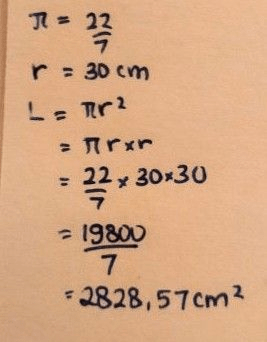 π = 22/7
r = 30 cm
L = πr²
= πr×r
= 22/7 × 30×30
= 19800/7
= 2828,57 cm²